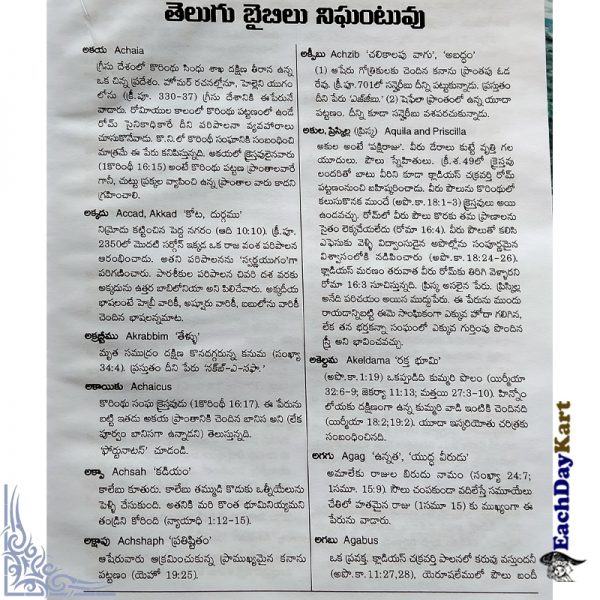 తెలుగు బైబిలు నిఘంటువు
అకయ Achaia
గ్రీసు దేశంలో కొరింథు సింధు శాఖ దక్షిణ తీరాన ఉన్న
ఒక చిన్న ప్రదేశం. హోమర్ రచనల్లోనూ, హెలైని యుగం
లోను (క్రీ.పూ. 330-37) గ్రీసు దేశానికి ఈపేరునే
వాడారు. రోమీయుల కాలంలో కొరింథు పట్టణంలో ఉండే
రోమ్ సైనికాధికారే దీని పరిపాలనా వ్యవహారాలు
చూసుకొనేవాడు. కొ.ని.లో కొరింథీ సంఘానికి సంబంధించి
మాత్రమే ఈ పేరు కనిపిస్తున్నది. అకయలో క్రైస్తవులైనవారు
(1కొరింథీ 16:15) అంటే కొరింథు పట్టణ ప్రాంతాలవారే
గానీ, చుట్టు ప్రక్కల వ్యాపించి ఉన్న ప్రాంతాల వారు కాదని
గ్రహించాలి.
అక్కదు Accad, Akkad 'కోట, దుర్గము'
నిమ్రోదు కట్టించిన పెద్ద నగరం (ఆది 10:10). క్రీ.పూ.
2350లో మొదటి సర్గోన్ ఇక్కడ ఒక రాజ వంశ పరిపాలన
ఆరంభించాడు. అతని పరిపాలనను 'స్వర్ణయుగం'గా
పరిగణించారు. పారశీకుల పరిపాలన చివరి దశ వరకు
అక్కదును ఉత్తర బాబిలోనియా అని పిలిచేవారు. అక్కదీయ
భాషలంటే హెబ్రీ వారికీ, అష్షూరు వారికీ, బబులోను వారికీ
చెందిన భాషలన్నమాట.
అక్రబ్బీము Akrabbim 'తేళ్ళు'
మృత సముద్రం దక్షిణ కొనదగ్గరున్న కనుమ (సంఖ్యా
34:4). ప్రస్తుతం దీని పేరు 'నక్బ్-ఎ-సఫా.'
అకాయికు Achaicus
కొరింథు సంఘ క్రైస్తవుడు (1కొరింథీ 16:17). ఈ పేరును
బట్టి ఇతడు అకయ ప్రాంతానికి చెందిన బానిస అని (లేక
పూర్వం బానిసగా ఉన్నాడని) తెలుస్తున్నది.
'ఫోర్టునాటస్' చూడండి.
అక్సా Achsah 'కడియం'
కాలేబు కూతురు. కాలేబు తమ్ముడి కొడుకు ఒత్నీయేలును
పెళ్ళి చేసుకుంది. అతనికి మరి కొంత భూమినియ్యమని
తండ్రిని కోరింది (న్యాయాధి 1:12-15).
అక్షాపు Achshaph 'ప్రతిష్ఠితం'
ఆషేరువారు ఆక్రమించుకున్న ప్రాముఖ్యమైన కనాను
పట్టణం (యెహో 19:25).
అక్జీబు Achzib 'చలికాలపు వాగు', 'అబద్ధం'
(1) ఆషేరు గోత్రికులకు చెందిన కనాను ప్రాంతపు ఓడ
రేవు. క్రీ.పూ.701లో సన్హెరీబు దీన్ని పట్టుకున్నాడు. ప్రస్తుతం
దీని పేరు 'ఏజ్‌జీబు.' (2) షెఫేలా ప్రాంతంలో ఉన్న యూదా
పట్టణం. దీన్ని కూడా సన్హెరీబు వశపరచుకున్నాడు.
అకుల, ప్రిస్కిల్ల (ప్రిస్క) Aquila and Priscilla
అకుల అంటే 'పక్షిరాజు'. వీరు డేరాలు కుట్టే వృత్తి గల
యూదులు. పౌలు స్నేహితులు. క్రీ.శ.49లో క్రైస్తవు
లందరితో బాటు వీరిని కూడా క్లాడియస్ చక్రవర్తి రోమ్
పట్టణంనుంచి బహిష్కరించాడు. వీరు పౌలును కొరింథులో
కలుసుకొనక ముందే (అపొ.కా. 18:1-3) క్రైస్తవులు అయి
ఉండవచ్చు. రోమ్‌లో వీరు పౌలు కొరకు తమ ప్రాణాలను
సైతం లెక్కచేయలేదు (రోమా 16:4). వీరు పౌలుతో కలిసి
ఎఫెసుకు వెళ్ళి విద్వాంసుడైన అపొల్లోను సంపూర్ణమైన
విశ్వాసంలోకి నడిపించారు (అపొ.కా. 18:24-26).
క్లాడియస్ మరణం తరువాత వీరు రోమ్‌కు తిరిగి వెళ్ళారని
రోమా 16:3 సూచిస్తున్నది. ప్రిస్క అసలైన పేరు. ప్రిస్కిల్ల
అనేది పరిచయం అయిన ముద్దుపేరు. ఈ పేరును ముందు
రాయడాన్నిబట్టి ఈమె సాంఘికంగా ఎక్కువ హోదా గలిగిన,
లేక తన భర్తకన్నా సంఘంలో ఎక్కువ గుర్తింపు పొందిన
స్త్రీ అని భావించవచ్చు.
అకెల్దమ Akeldama 'రక్త భూమి'
(అపొ.కా. 1:19) ఒకప్పుడిది కుమ్మరి పొలం (యిర్మీయా
32:6-9; జెకర్యా 11:13; మత్తయి 27:3-10). హిన్నోం
లోయకు దక్షిణంగా ఉన్న కుమ్మరి వాడి ఇంటికి చెందినది
(యిర్మీయా 18:2;19:2). యూదా ఇస్కరియోతు చరిత్రకు
సంబంధించినది.
అగగు Agag 'ఉన్నత', 'యుద్ధ వీరుడు'
అమాలేకు రాజుల బిరుదు నామం (సంఖ్యా 24:7;
1సమూ. 15:9) సౌలు చంపకుండా వదిలేస్తే సమూయేలు
చేతిలో హతమైన రాజు (1సమూ 15) కు ముఖ్యంగా ఈ
పేరును వాడారు.
అగబు Agabus
ఒక ప్రవక్త. క్లాడియస్ చక్రవర్తి పాలనలో కరువు వస్తుందనీ
(అపొ.కా. 11:27,28), యెరూషలేములో పౌలు బందీ
EachDayKart